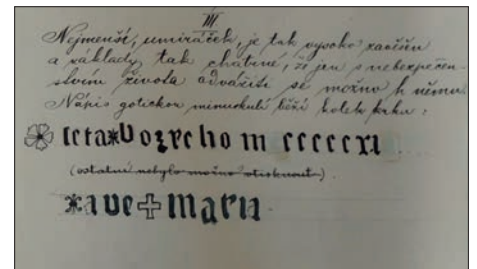 III.
Nejmenší, umíráček, je tak vysoko zavěšen
a základy tak chabimé, že jen s nebezpečen-
stvím života odvážiti se možno k němu.
Nápis gotickou minuskulí běží kolek krku:
leta*bozreho m cccccxi
(ostatní nebylo možno otisknout).
*ave✠maria